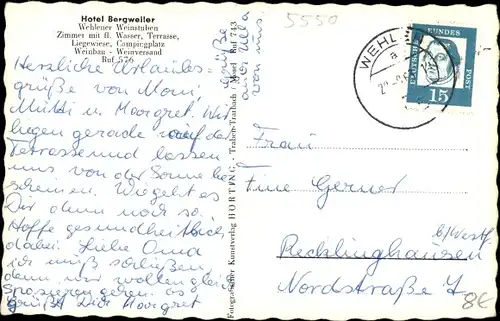 Hotel Bergweiler
Wehlener Weinstuben
Zimmer mit fl. Wasser, Terrasse,
Liegewiese, Campingplatz
Weinbau - Weinversand
Ruf 576
Herzliche Urlaubs-
grüße von Moni,
Mutti u Margret. Wir
liegen gerade auf der
Terrasse und lassen
uns von der Sonne be
scheinen. Wie geht es
Dir denn noch so.
Hoffe gesundheitlich
dabei. Liebe Oma
ich muß schließen,
denn wir wollen gleich
spazieren gehen. Es
grüßt Dich Margret
Grüße
auch Ulla
von uns
Fotografischer Kunstverlag HORTING - Traben-Trarbach / Mosel Ruf 743
5550
WEHLEN
DEUTSCHE
BUNDES
POST
15
Frau
Fine Gerner
Recklinghausen
b/Westf.
Nordstraße 7
8€